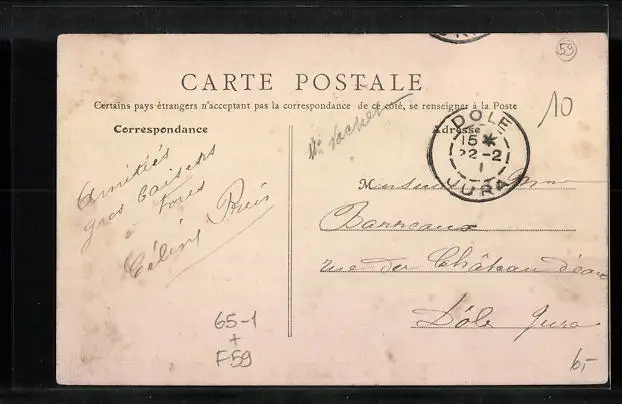 59
CARTE POSTALE
Certains pays étrangers n'acceptant pas la correspondance de ce côté, se renseigner à la Poste
10
Correspondance
Adresse
DOLE
15 *
22 - 2
1
JURA
Amitiés
gros baisers
à tous
Céliny
M
Barreaux
rue du Château d'eau
Dôle Jura
65-1
+
F59
6,-